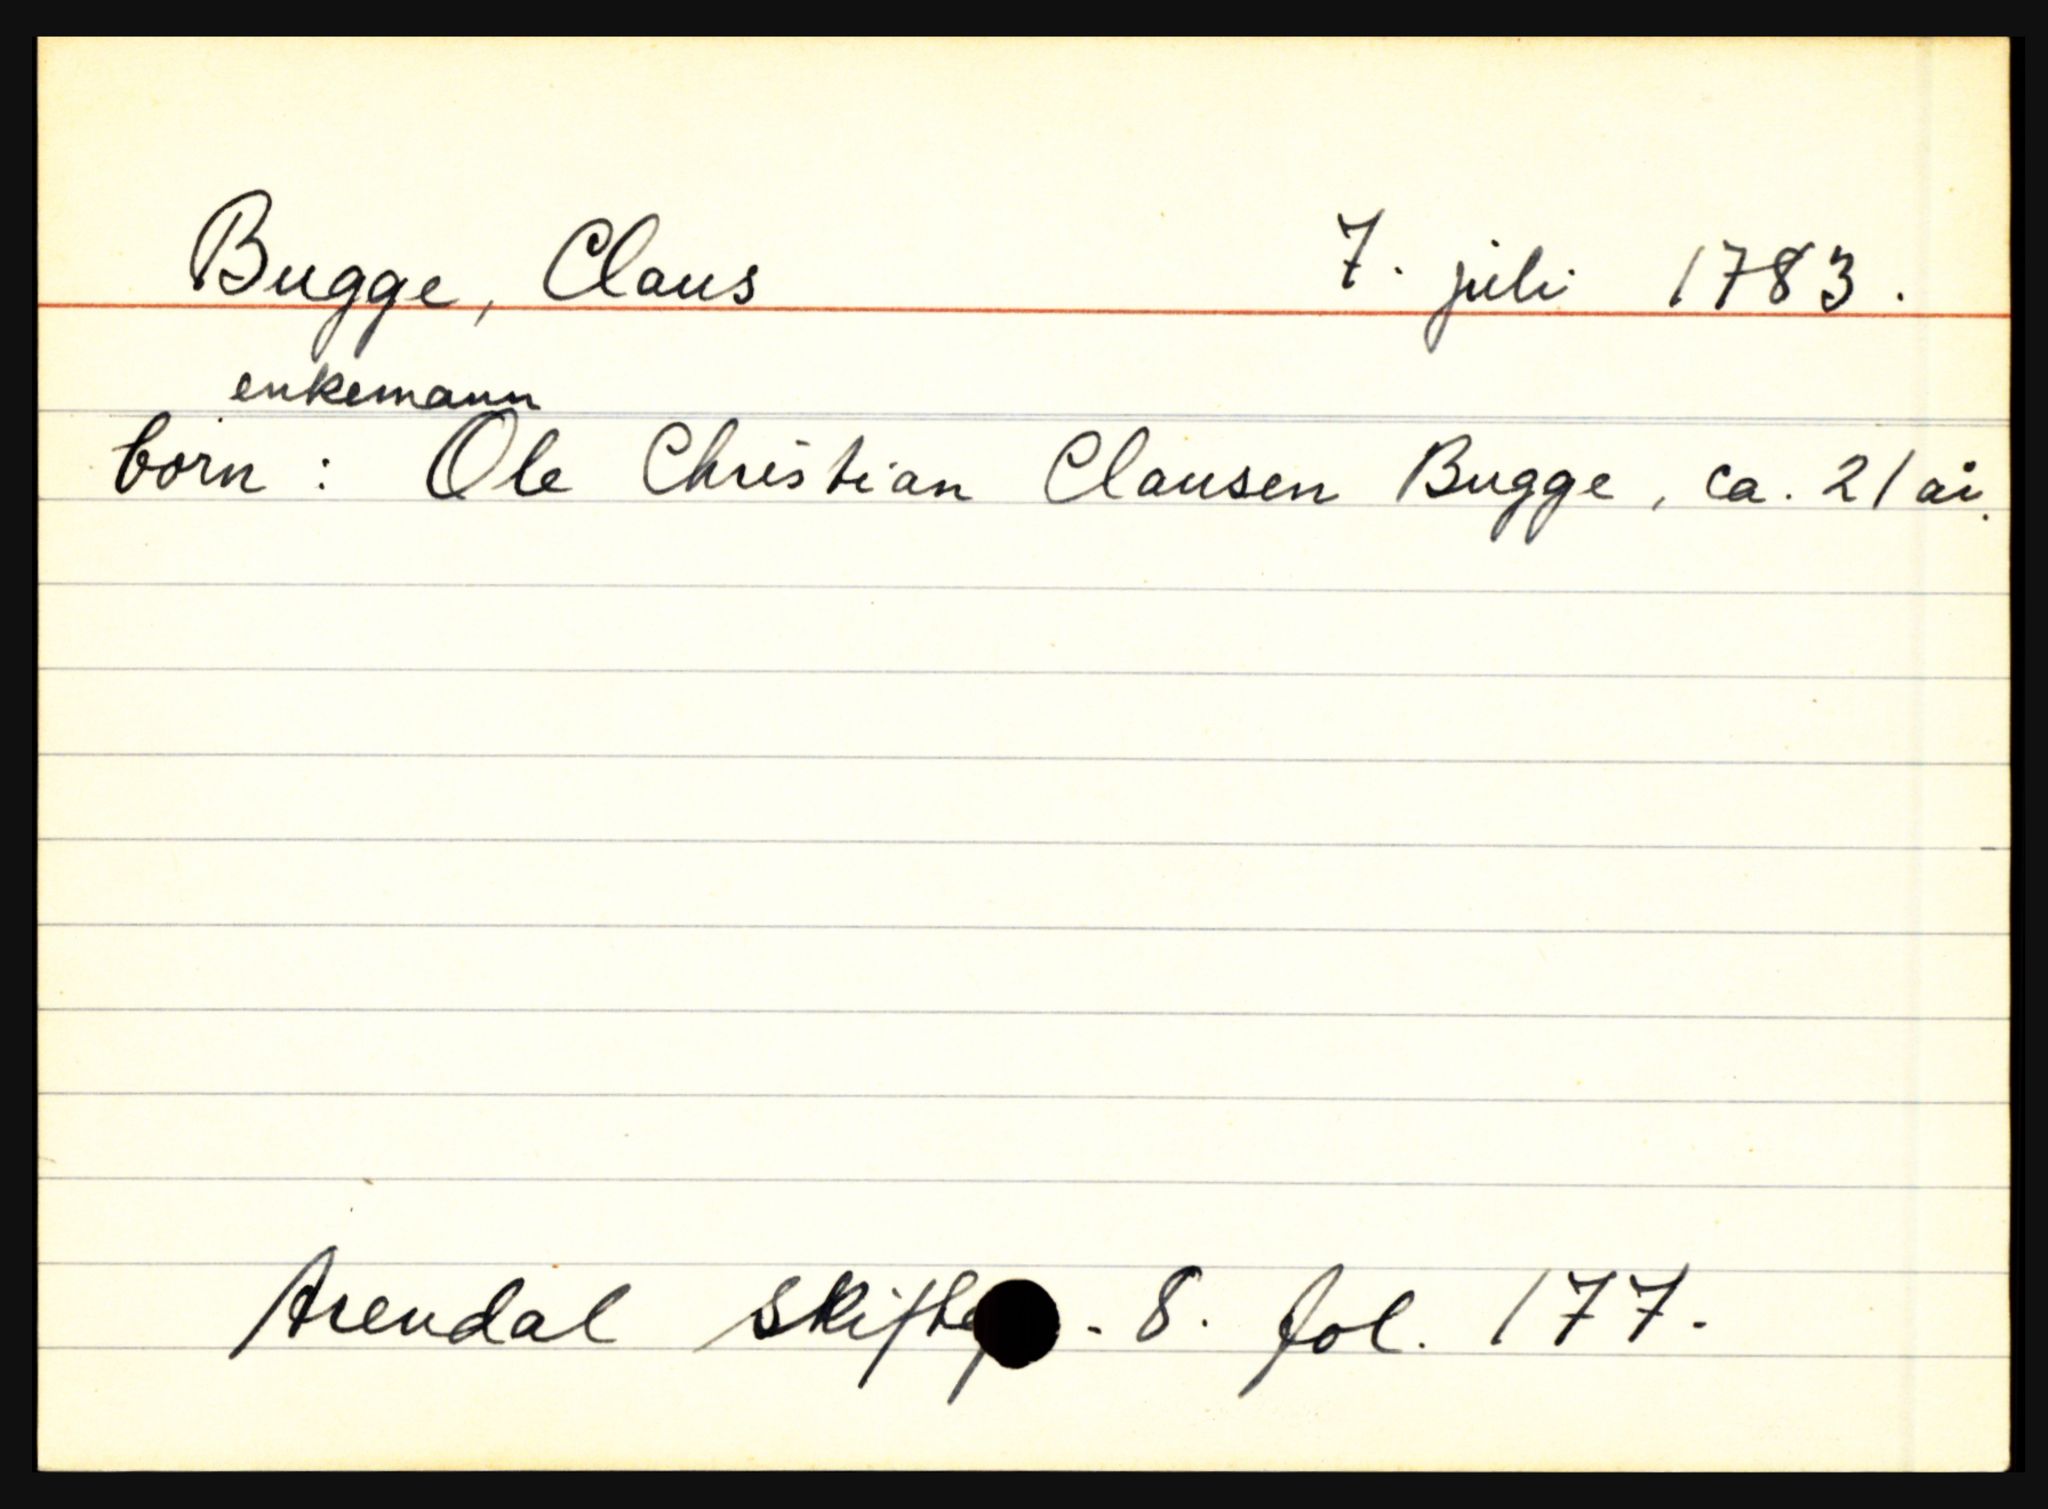 Bugge, Claus 7. juli 1783.
enkemann
born: Ole Christian Clausen Bugge, ca. 21 år.
Arendal - 8. fol. 177.